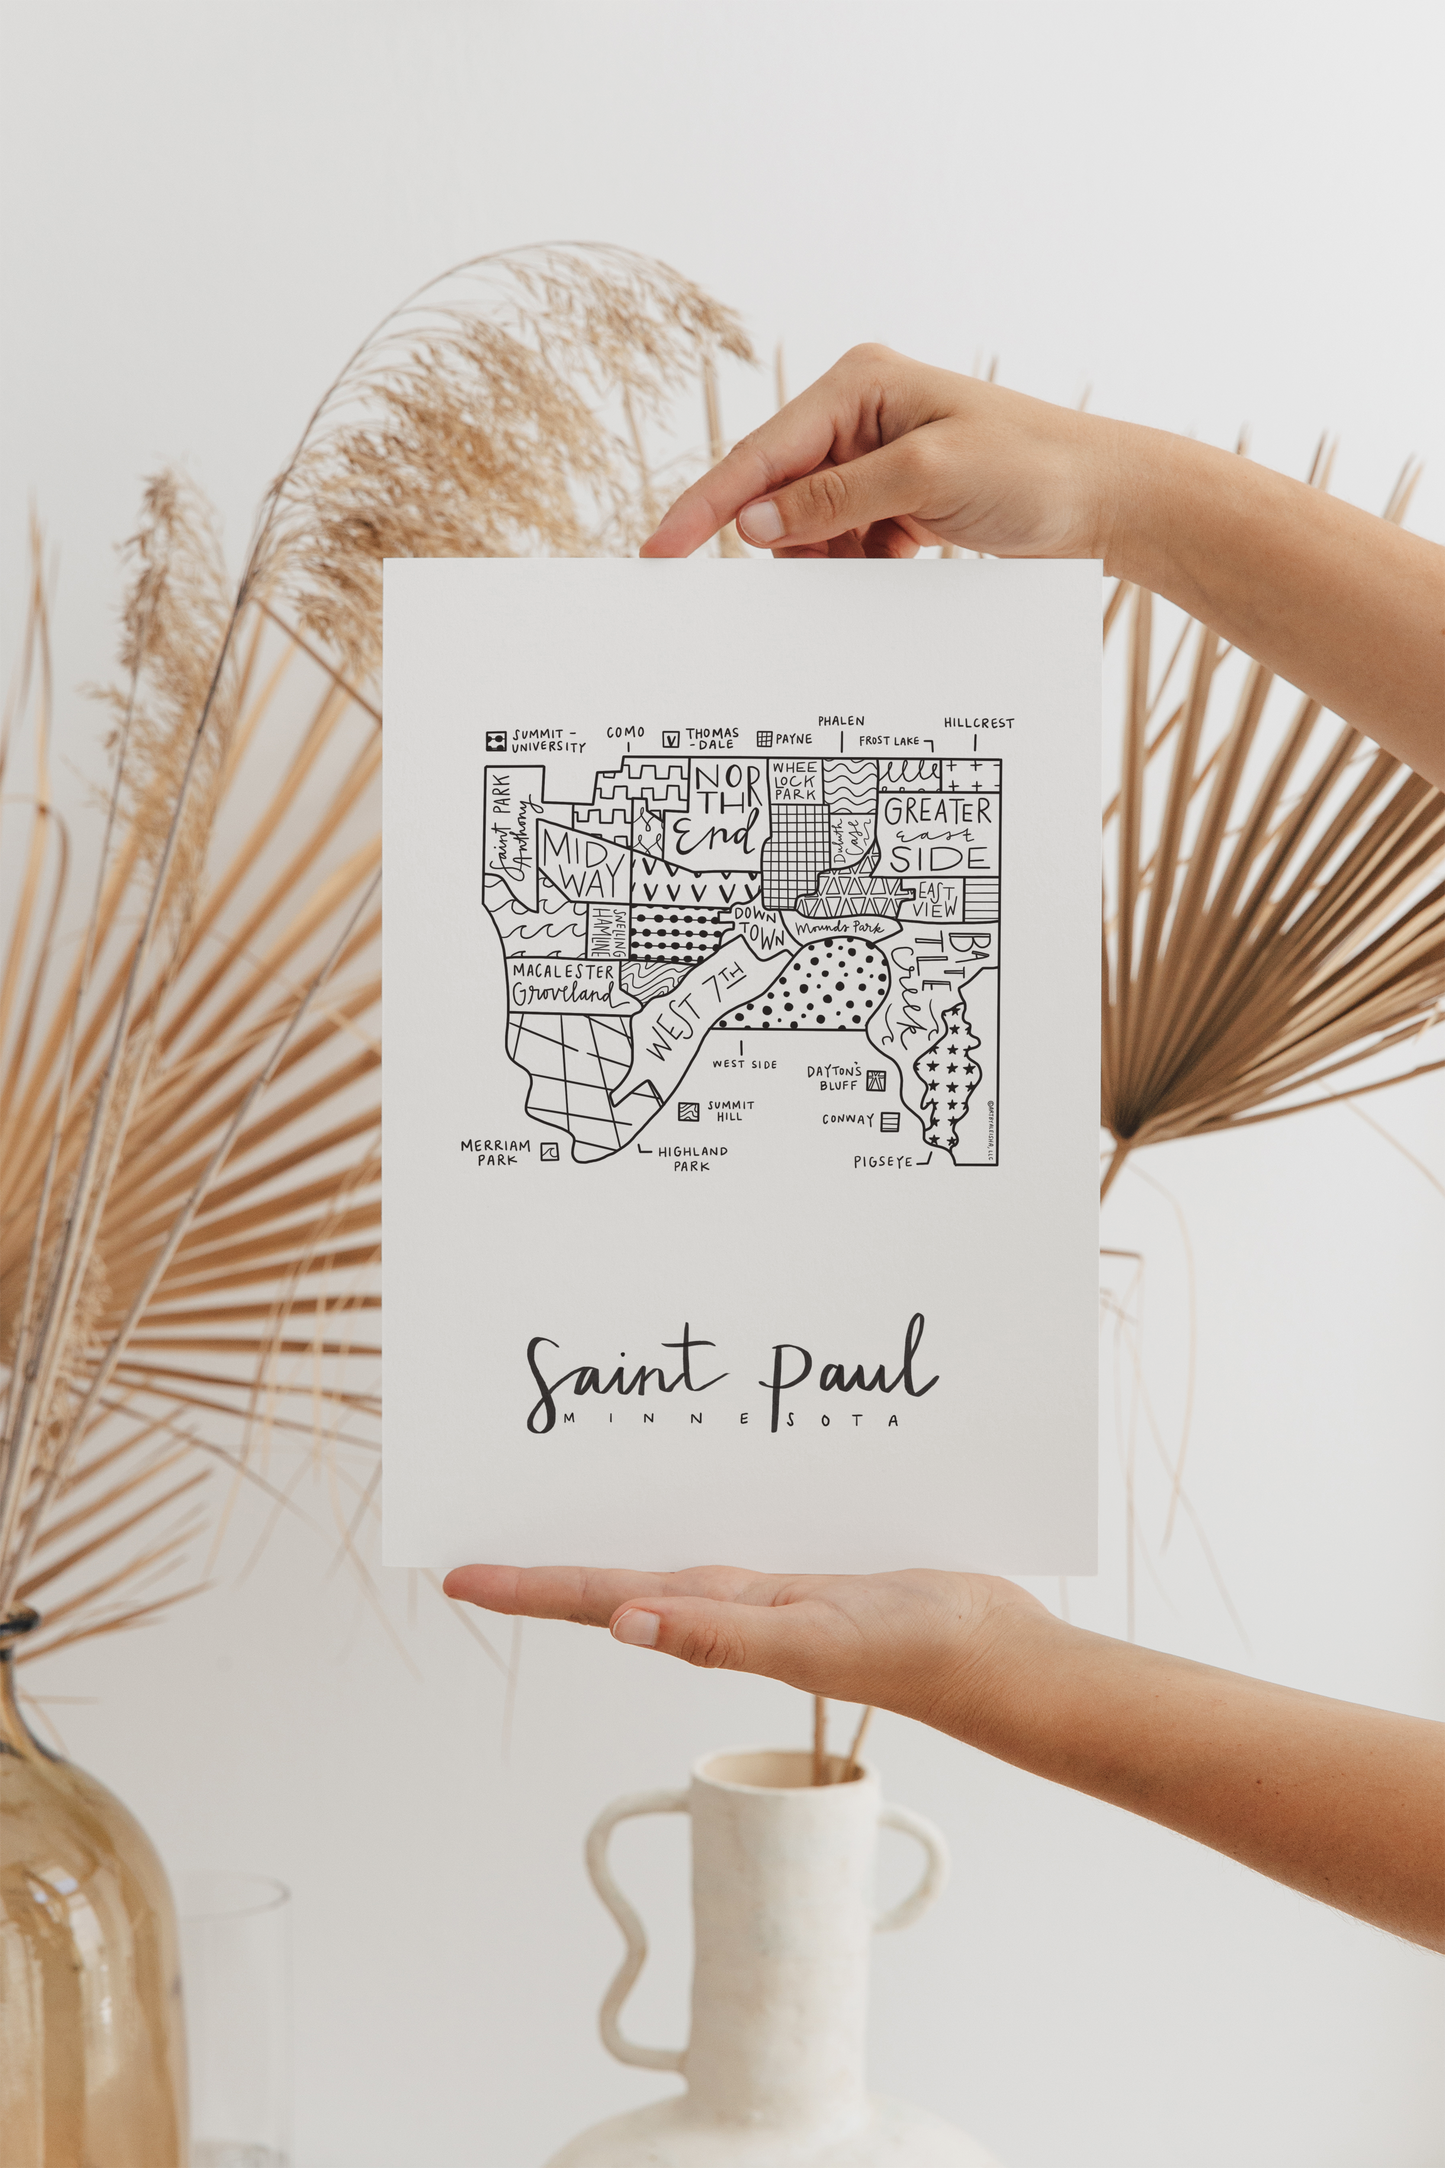 SUMMIT -
UNIVERSITY
COMO
THOMAS
-DALE
PAYNE
PHALEN
FROST LAKE
HILLCREST
Saint PARK
Anthony
MID
WAY
NOR
TH
End
WHEE
LOCK
PARK
Duluth
Case
GREATER
east
SIDE
EAST
VIEW
SNELLING
HAMLINE
DOWN
TOWN
Mounds Park
BAT
TLE
Creek
MACALESTER
Groveland
WEST 7TH
WEST SIDE
DAYTON'S
BLUFF
SUMMIT
HILL
CONWAY
MERRIAM
PARK
HIGHLAND
PARK
PIGSEYE
©ARTBYALEISHA, LLC
Saint Paul
MINNESOTA